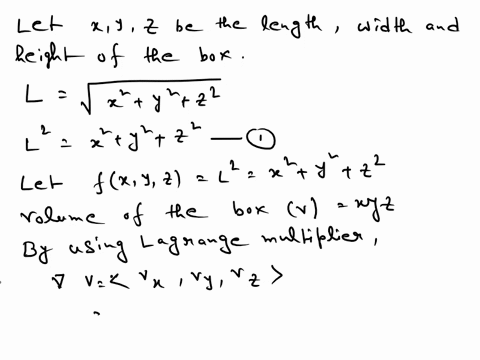 Let x, y, z be the length, width and
height of the box.
L = √(x² + y² + z²)
L² = x² + y² + z² — ①
Let f(x, y, z) = L² = x² + y² + z²
Volume of the box (v) = xyz
By using Lagrange multiplier,
∇ v = < v_x , v_y , v_z >